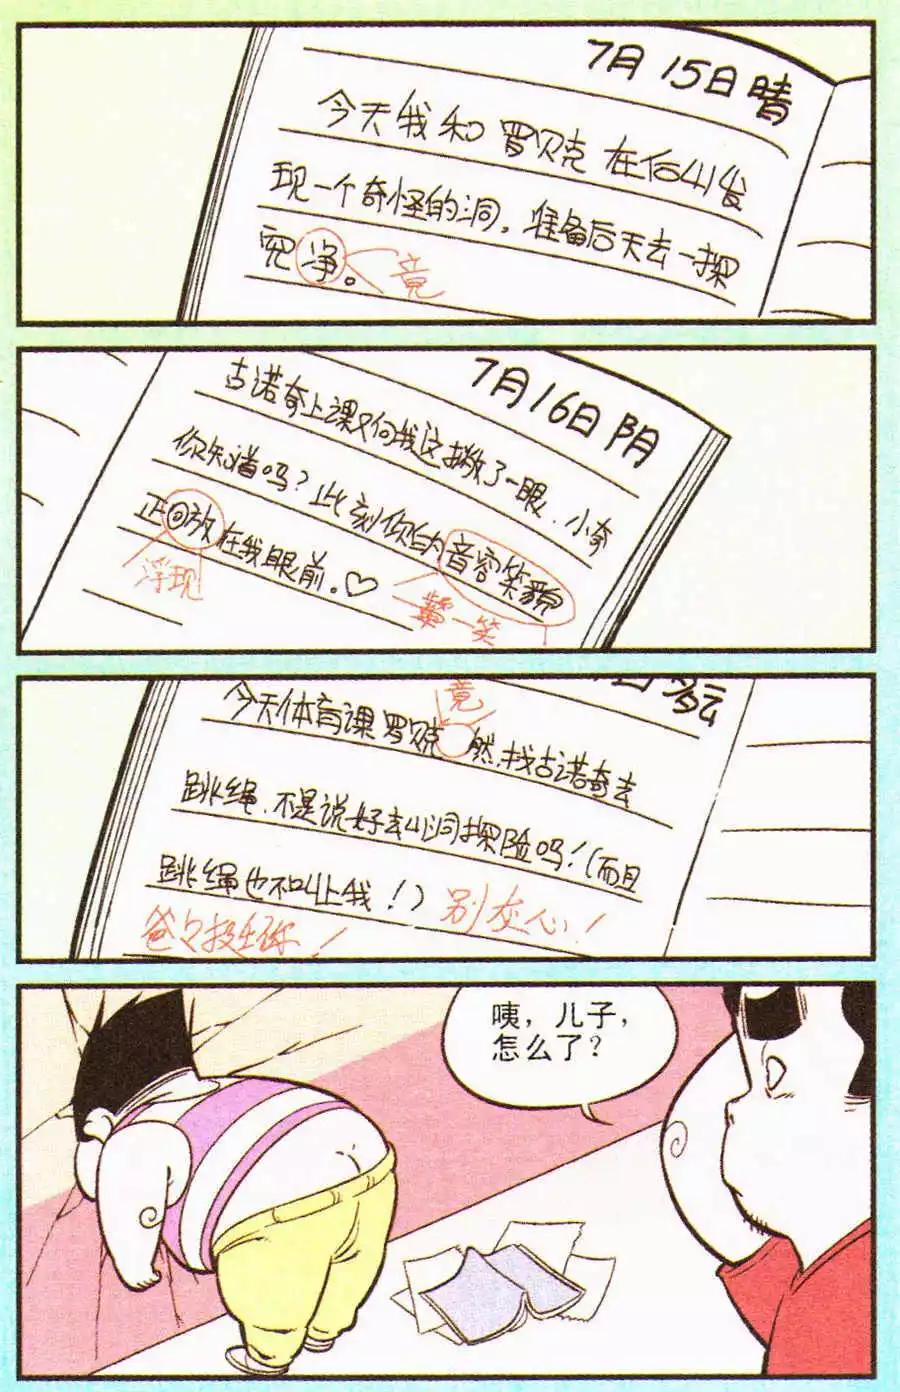 7月15日晴
今天我和罗贝克在后山发
现一个奇怪的洞。准备后天去一探
究净。
竟
7月16日阴
古诺奇上课又向我这撇了一眼.小奇
你知道吗?此刻你的音容笑貌
正回放在我眼前。♡
浮现
颦一笑
日多云
今天体育课罗贝克 然.找古诺奇去
竟
跳绳.不是说好去山洞探险吗!(而且
跳绳也不叫上我!)
别灰心!
爸々挺你!
咦,儿子,
怎么了?